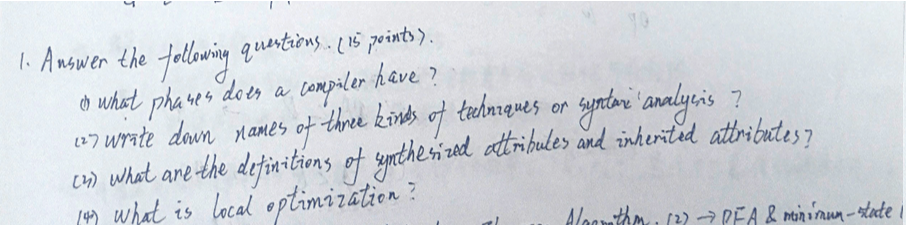 1. Answer the following questions. (15 points).
(1) what phases does a compiler have?
(2) write down names of three kinds of techniques or syntax analysis?
(3) what are the definitions of synthesized attributes and inherited attributes?
(4) What is local optimization?
Algorithm. (2) → DFA & minimum-state